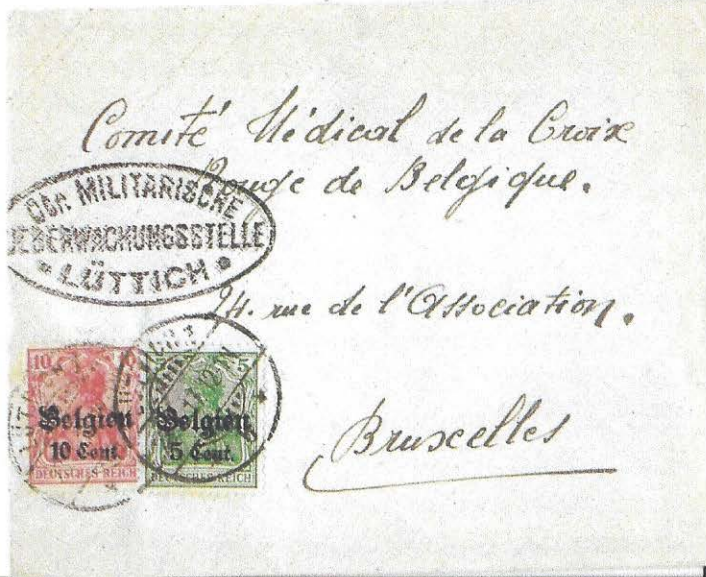 Comité Médical de la Croix
Rouge de Belgique.
Obr. MILITARISCHE
UEBERWACHUNGSSTELLE
• LÜTTICH •
rue de l'Association.
Bruxelles
10
Belgien
10 Cent.
DEUTSCHES REICH
5
Belgien
5 Cent.
DEUTSCHES REICH